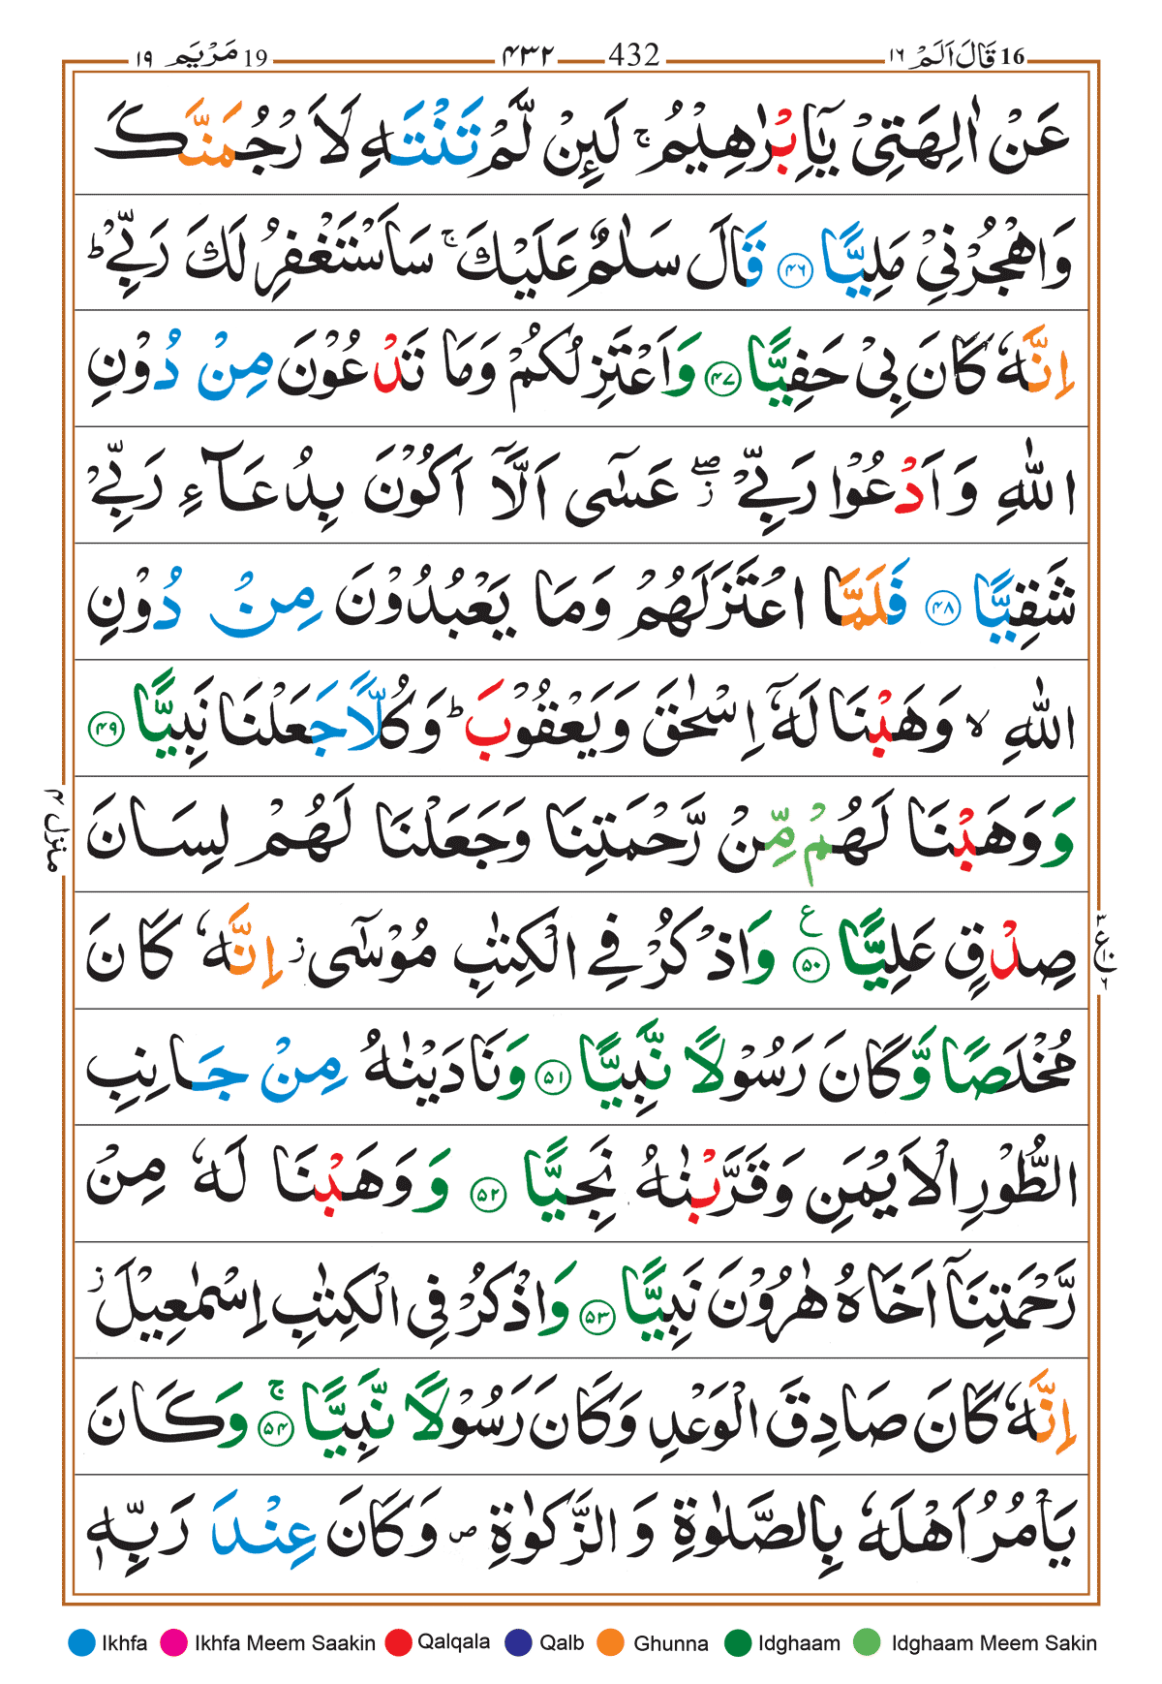 16 قَالَ اَلَمْ ١٦ 432 ۴۳۲ 19 مَرْيَم ١٩
عَنْ اٰلِهَتِىْ يٰۤاِبْرٰهِيْمُ‌ۚ لَٮِٕنْ لَّمْ تَنْتَهِ لَاَرْجُمَنَّكَ‌
وَاهْجُرْنِىْ مَلِيًّا ﴿۴۶﴾ قَالَ سَلٰمٌ عَلَيْكَ‌ۚ سَاَسْتَغْفِرُ لَكَ رَبِّىْؕ
اِنَّهٗ كَانَ بِىْ حَفِيًّا ﴿۴۷﴾ وَاَعْتَزِلُكُمْ وَمَا تَدْعُوْنَ مِنْ دُوْنِ
اللّٰهِ وَاَدْعُوْا رَبِّىْ ‌ۖز عَسٰٓى اَلَّاۤ اَكُوْنَ بِدُعَآءِ رَبِّىْ
شَقِيًّا ﴿۴۸﴾ فَلَمَّا اعْتَزَلَهُمْ وَمَا يَعْبُدُوْنَ مِنْ دُوْنِ
اللّٰهِ ۙ وَهَبْنَا لَهٗۤ اِسْحٰقَ وَيَعْقُوْبَ‌ ؕ وَكُلًّا جَعَلْنَا نَبِيًّا ﴿۴۹﴾
وَوَهَبْنَا لَهُمْ مِّنْ رَّحْمَتِنَا وَجَعَلْنَا لَهُمْ لِسَانَ
صِدْقٍ عَلِيًّا ﴿۵۰﴾ ع وَاذْكُرْ فِى الْكِتٰبِ مُوْسٰٓى‌ ز اِنَّهٗ كَانَ
مُخْلَصًا وَّكَانَ رَسُوْلًا نَّبِيًّا ﴿۵۱﴾ وَنَادَيْنٰهُ مِنْ جَانِبِ
الطُّوْرِ الْاَيْمَنِ وَقَرَّبْنٰهُ نَجِيًّا ﴿۵۲﴾ وَوَهَبْنَا لَهٗ مِنْ
رَّحْمَتِنَاۤ اَخَاهُ هٰرُوْنَ نَبِيًّا ﴿۵۳﴾ وَاذْكُرْ فِى الْكِتٰبِ اِسْمٰعِيْلَ‌ ز
اِنَّهٗ كَانَ صَادِقَ الْوَعْدِ وَكَانَ رَسُوْلًا نَّبِيًّا‌ ۚ ﴿۵۴﴾ وَكَانَ
يَاْمُرُ اَهْلَهٗ بِالصَّلٰوةِ وَالزَّكٰوةِ ص وَكَانَ عِنْدَ رَبِّهٖ
منزل ۴
۳ ع ۶
Ikhfa Ikhfa Meem Saakin Qalqala Qalb Ghunna Idghaam Idghaam Meem Sakin